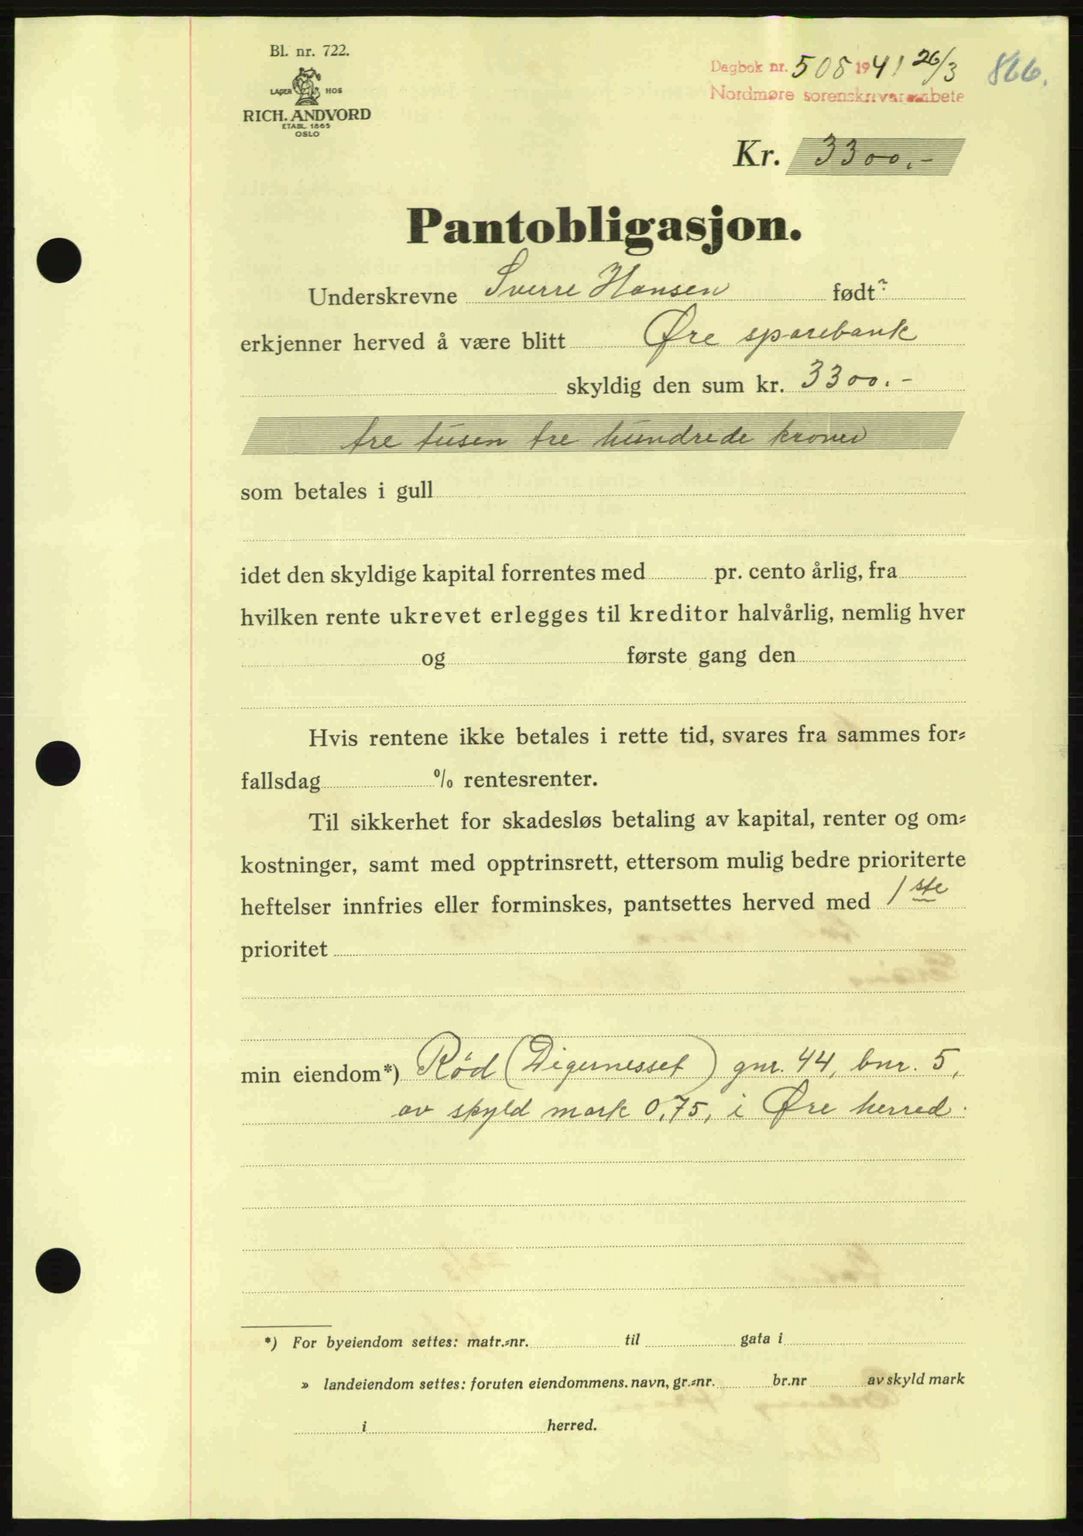 Bl. nr. 722.
LAGER HOS
RICH. ANDVORD
ETABL. 1865
OSLO
Dagbok nr. 508 1941 26/3 866.
Nordmøre sorenskrivarembete
Kr. 3300.-
Pantobligasjon.
Underskrevne Sverre Hansen født
erkjenner herved å være blitt Øre sparebank
skyldig den sum kr. 3300.-
tre tusen tre hundrede kroner
som betales i gull
idet den skyldige kapital forrentes med pr. cento årlig, fra
hvilken rente ukrevet erlegges til kreditor halvårlig, nemlig hver
og første gang den
Hvis rentene ikke betales i rette tid, svares fra sammes for-
fallsdag % rentesrenter.
Til sikkerhet for skadesløs betaling av kapital, renter og om-
kostninger, samt med opptrinsrett, ettersom mulig bedre prioriterte
heftelser innfries eller forminskes, pantsettes herved med 1ste
prioritet
min eiendom*) Rød (Digernesset) gnr. 44, bnr. 5,
av skyld mark 0,75, i Øre herred.
*) For byeiendom settes: matr.-nr. til gata i
» landeiendom settes: foruten eiendommens. navn, gr.-nr. br.nr av skyld mark
i herred.